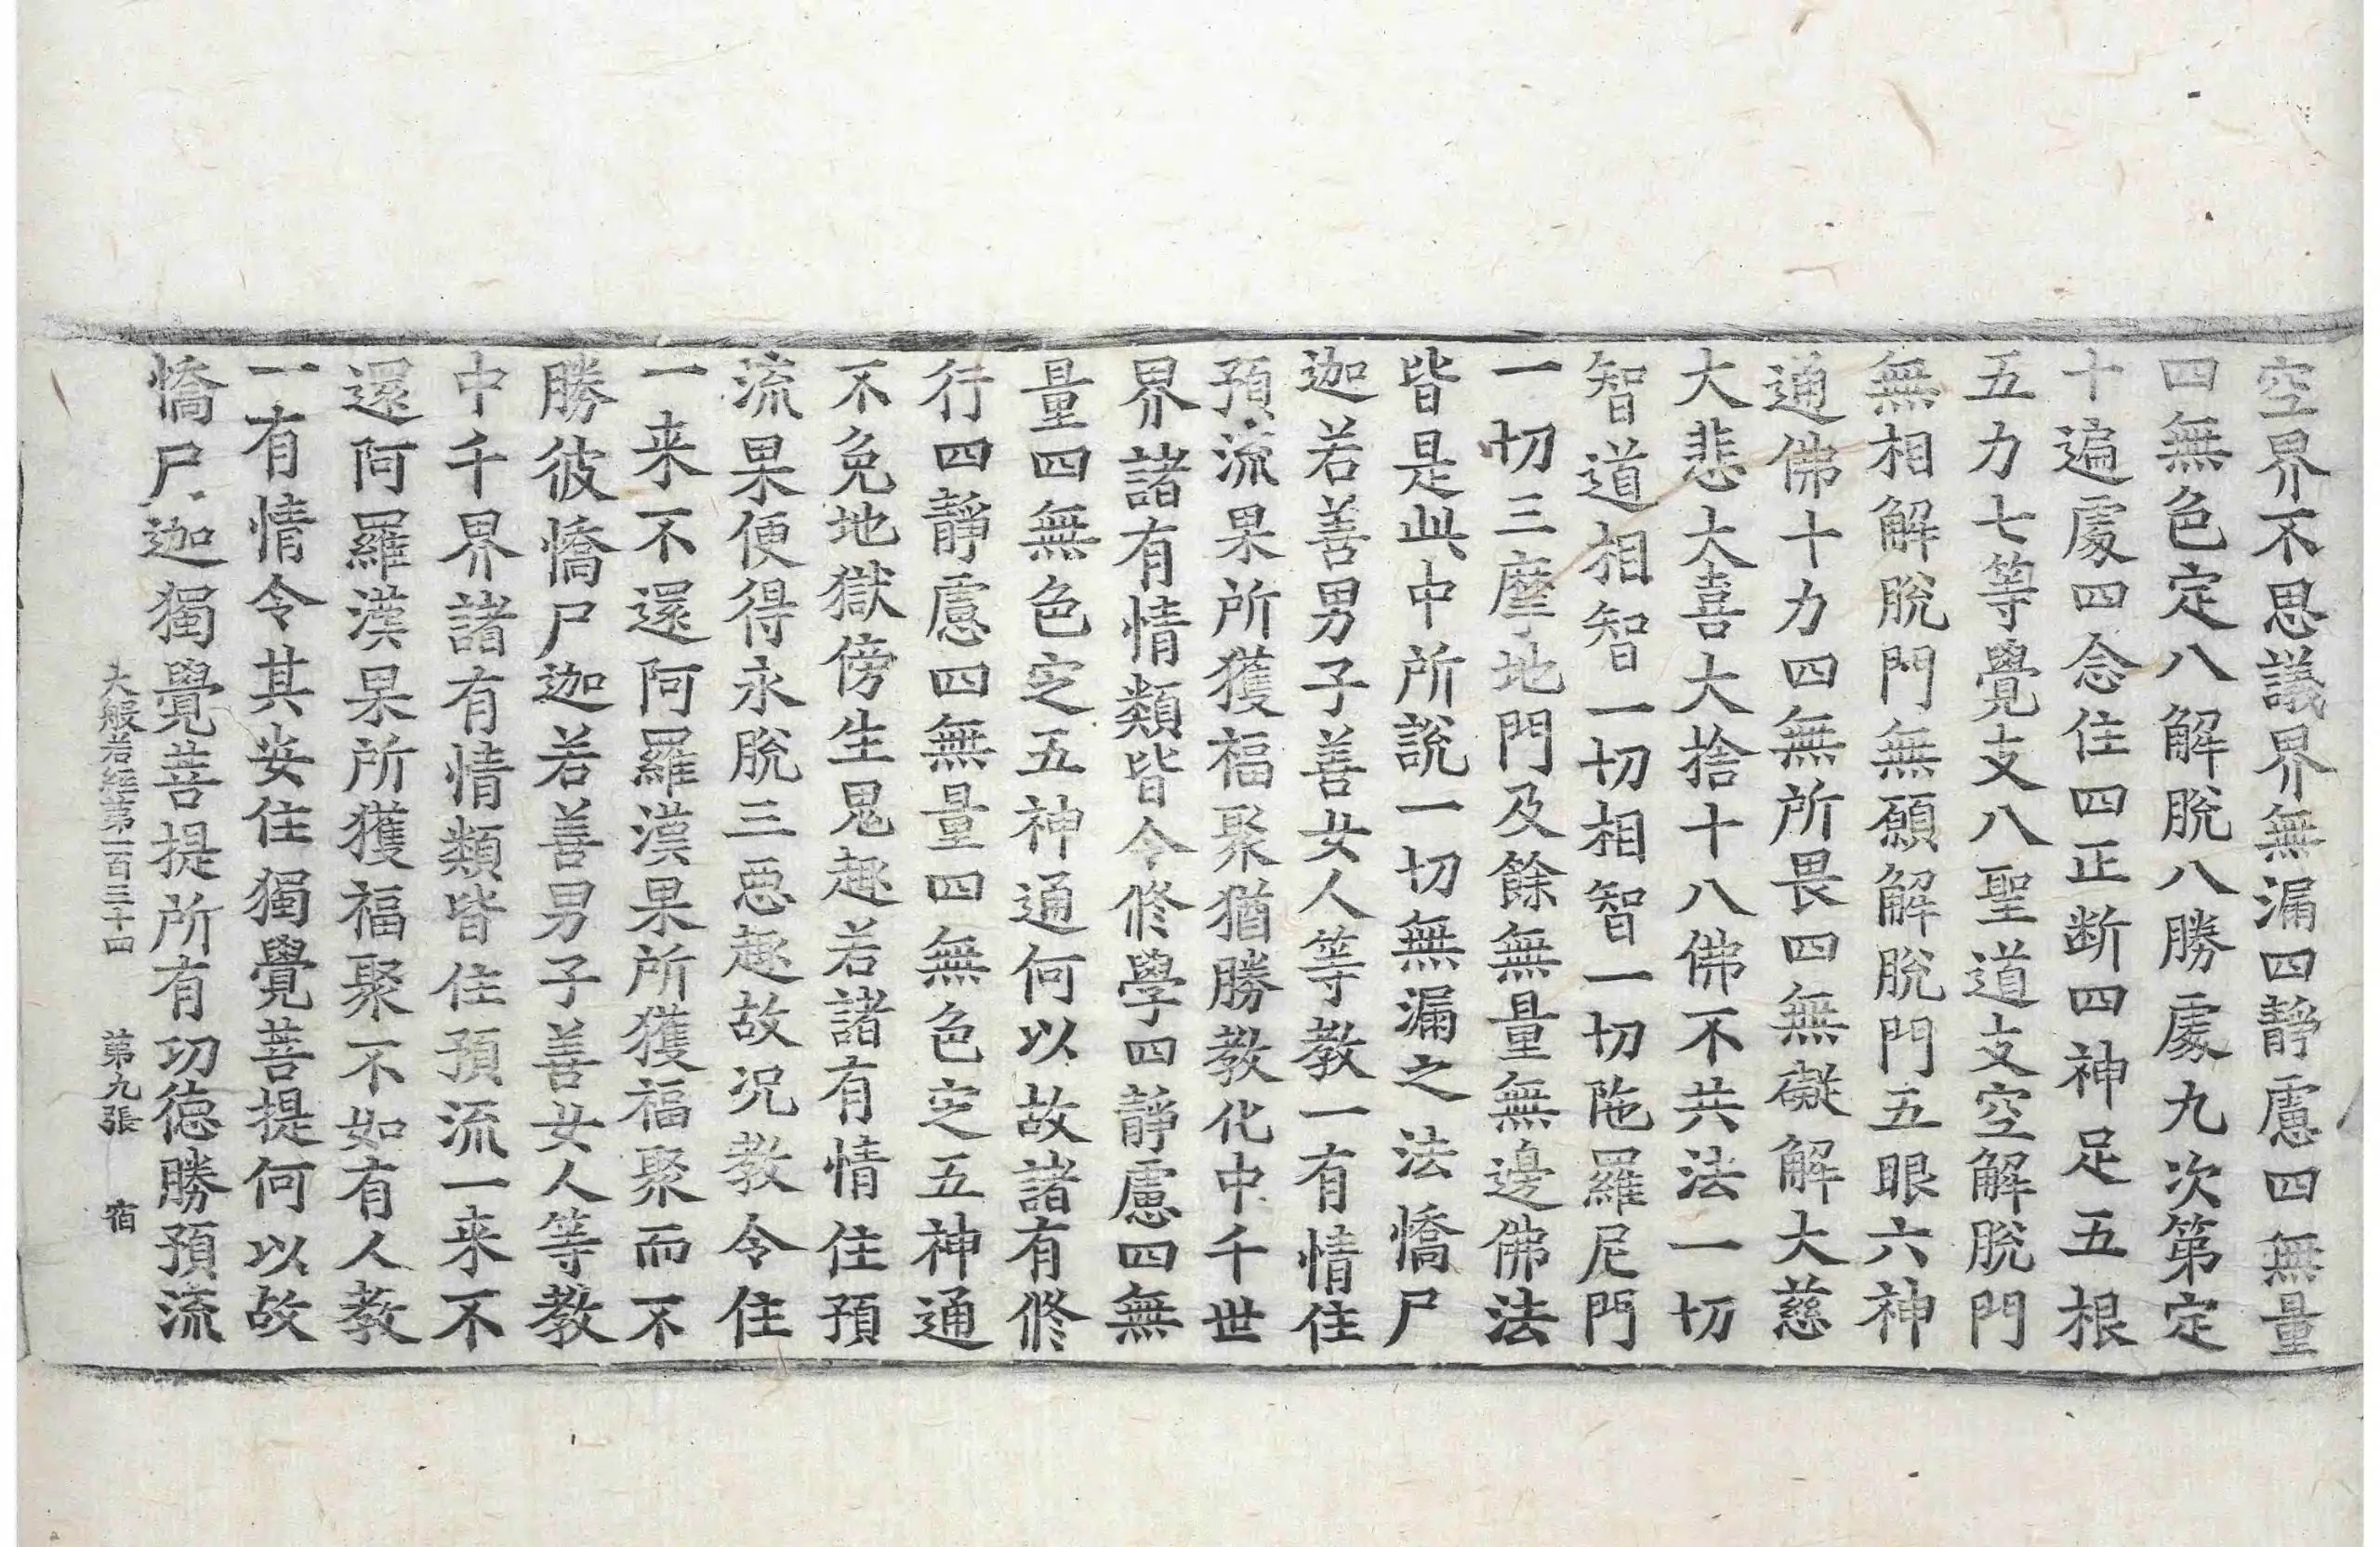 空界不思議界無漏四靜慮四無量
四無色定八解脫八勝處九次第定
十遍處四念住四正断四神足五根
五力七等覺支八聖道支空解脫門
無相解脫門無願解脫門五眼六神
通佛十力四無所畏四無礙解大慈
大悲大喜大捨十八佛不共法一切
智道相智一切相智一切陁羅尼門
一切三摩地門及餘無量無邊佛法
皆是此中所說一切無漏之法憍尸
迦若善男子善女人等教一有情住
預流果所獲福聚猶勝教化中千世
界諸有情類皆令修學四靜慮四無
量四無色定五神通何以故諸有修
行四靜慮四無量四無色定五神通
不免地獄傍生鬼趣若諸有情住預
流果便得永脫三惡趣故况教令住
一来不還阿羅漢果所獲福聚而不
勝彼憍尸迦若善男子善女人等教
中千界諸有情類皆住預流一来不
還阿羅漢果所獲福聚不如有人教
一有情令其安住獨覺菩提何以故
憍尸迦獨覺菩提所有功德勝預流
大般若經第一百三十四 第九張 宿